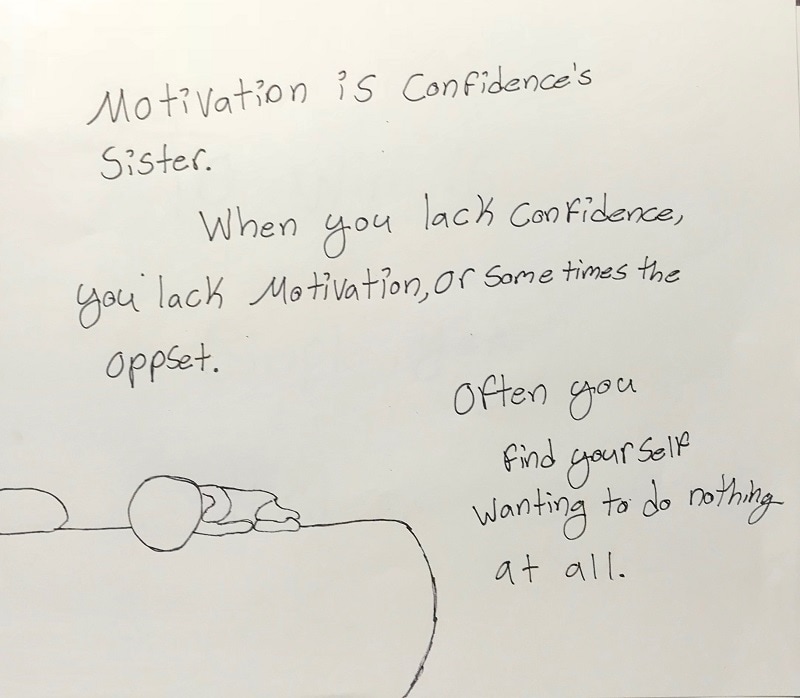 Motivation is Confidence's
Sister.
When you lack Confidence,
you lack Motivation, or Sometimes the
oppset.
Often you
find yourself
wanting to do nothing
at all.